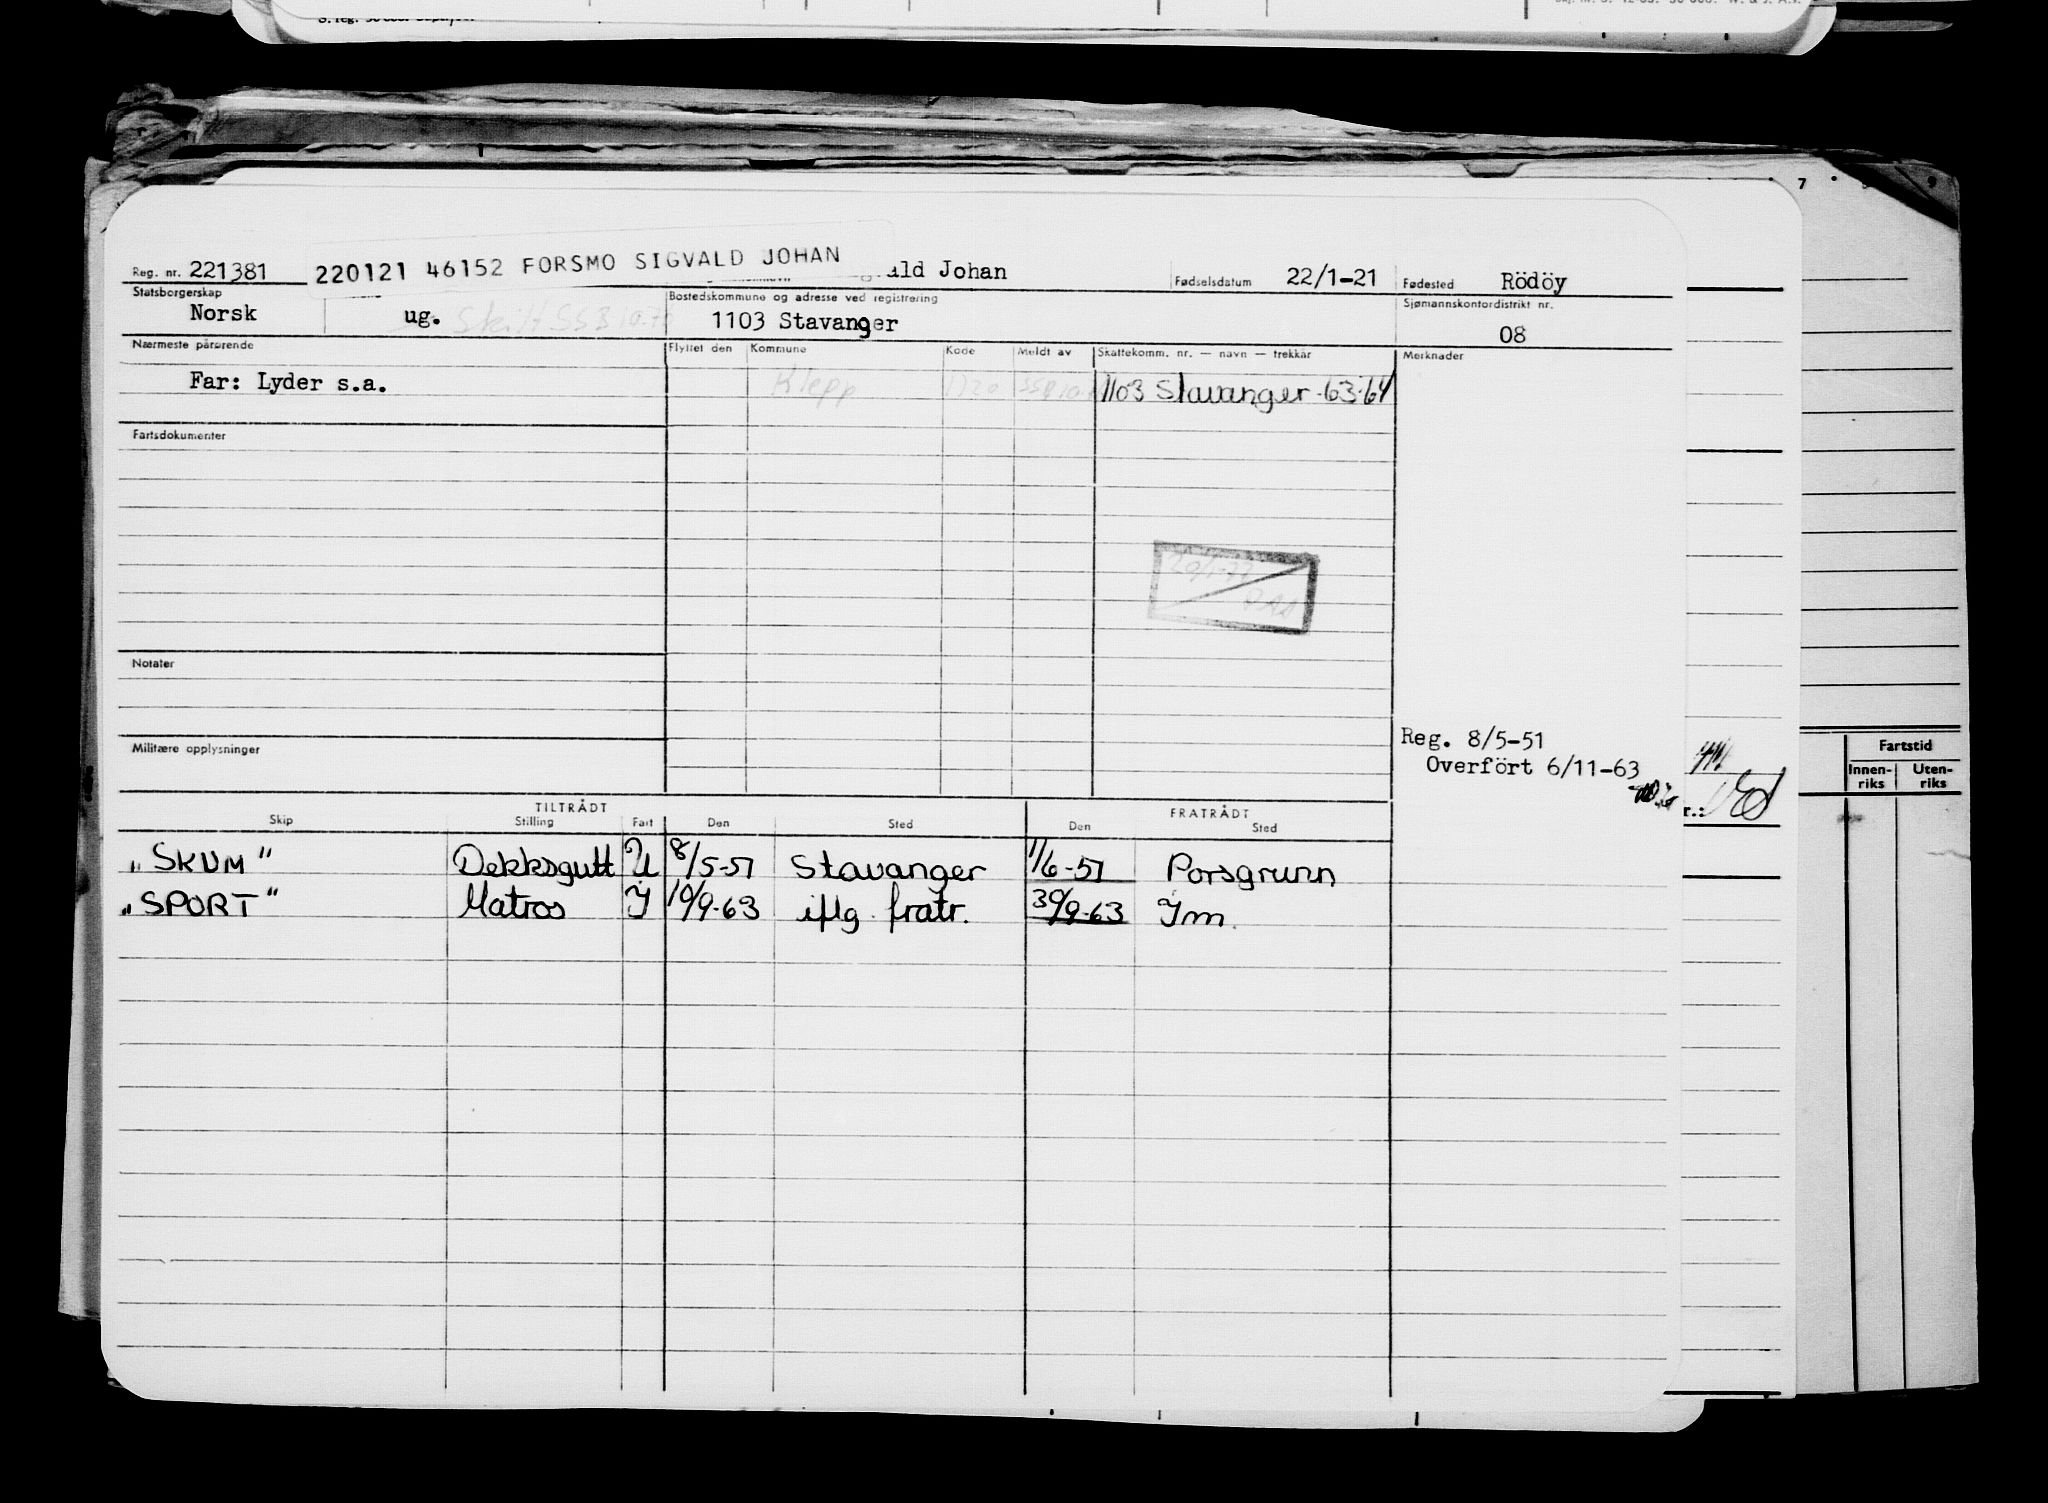 Reg. nr. 221381
220121 46152 FORSMO SIGVALD JOHAN
ald Johan
Fødselsdatum 22/1-21
Fødested Rödöy
Statsborgerskap
Norsk
ug.
Bostedskommune og adresse ved registrering
1103 Stavanger
Sjømannskontordistrikt nr.
08
Nærmeste pårørende
Far: Lyder s.a.
Flyttet den Kommune Kode Meldt av Skattekomm. nr. — navn — trekkår
Klepp 1103 Stavanger -63-64
Merknader
Fartsdokumenter
Notater
Militære opplysninger
Reg. 8/5-51
Overfört 6/11-63
Fartstid
Innen-riks Uten-riks
TILTRÅDT FRATRÅDT
Skip Stilling Fart Den Sted Den Sted
"SKUM" Dekksgutt U 8/5-51 Stavanger 1/6-51 Porsgrunn
"SPORT" Matros I 10/9-63 iflg. fratr. 30/9-63 Im.